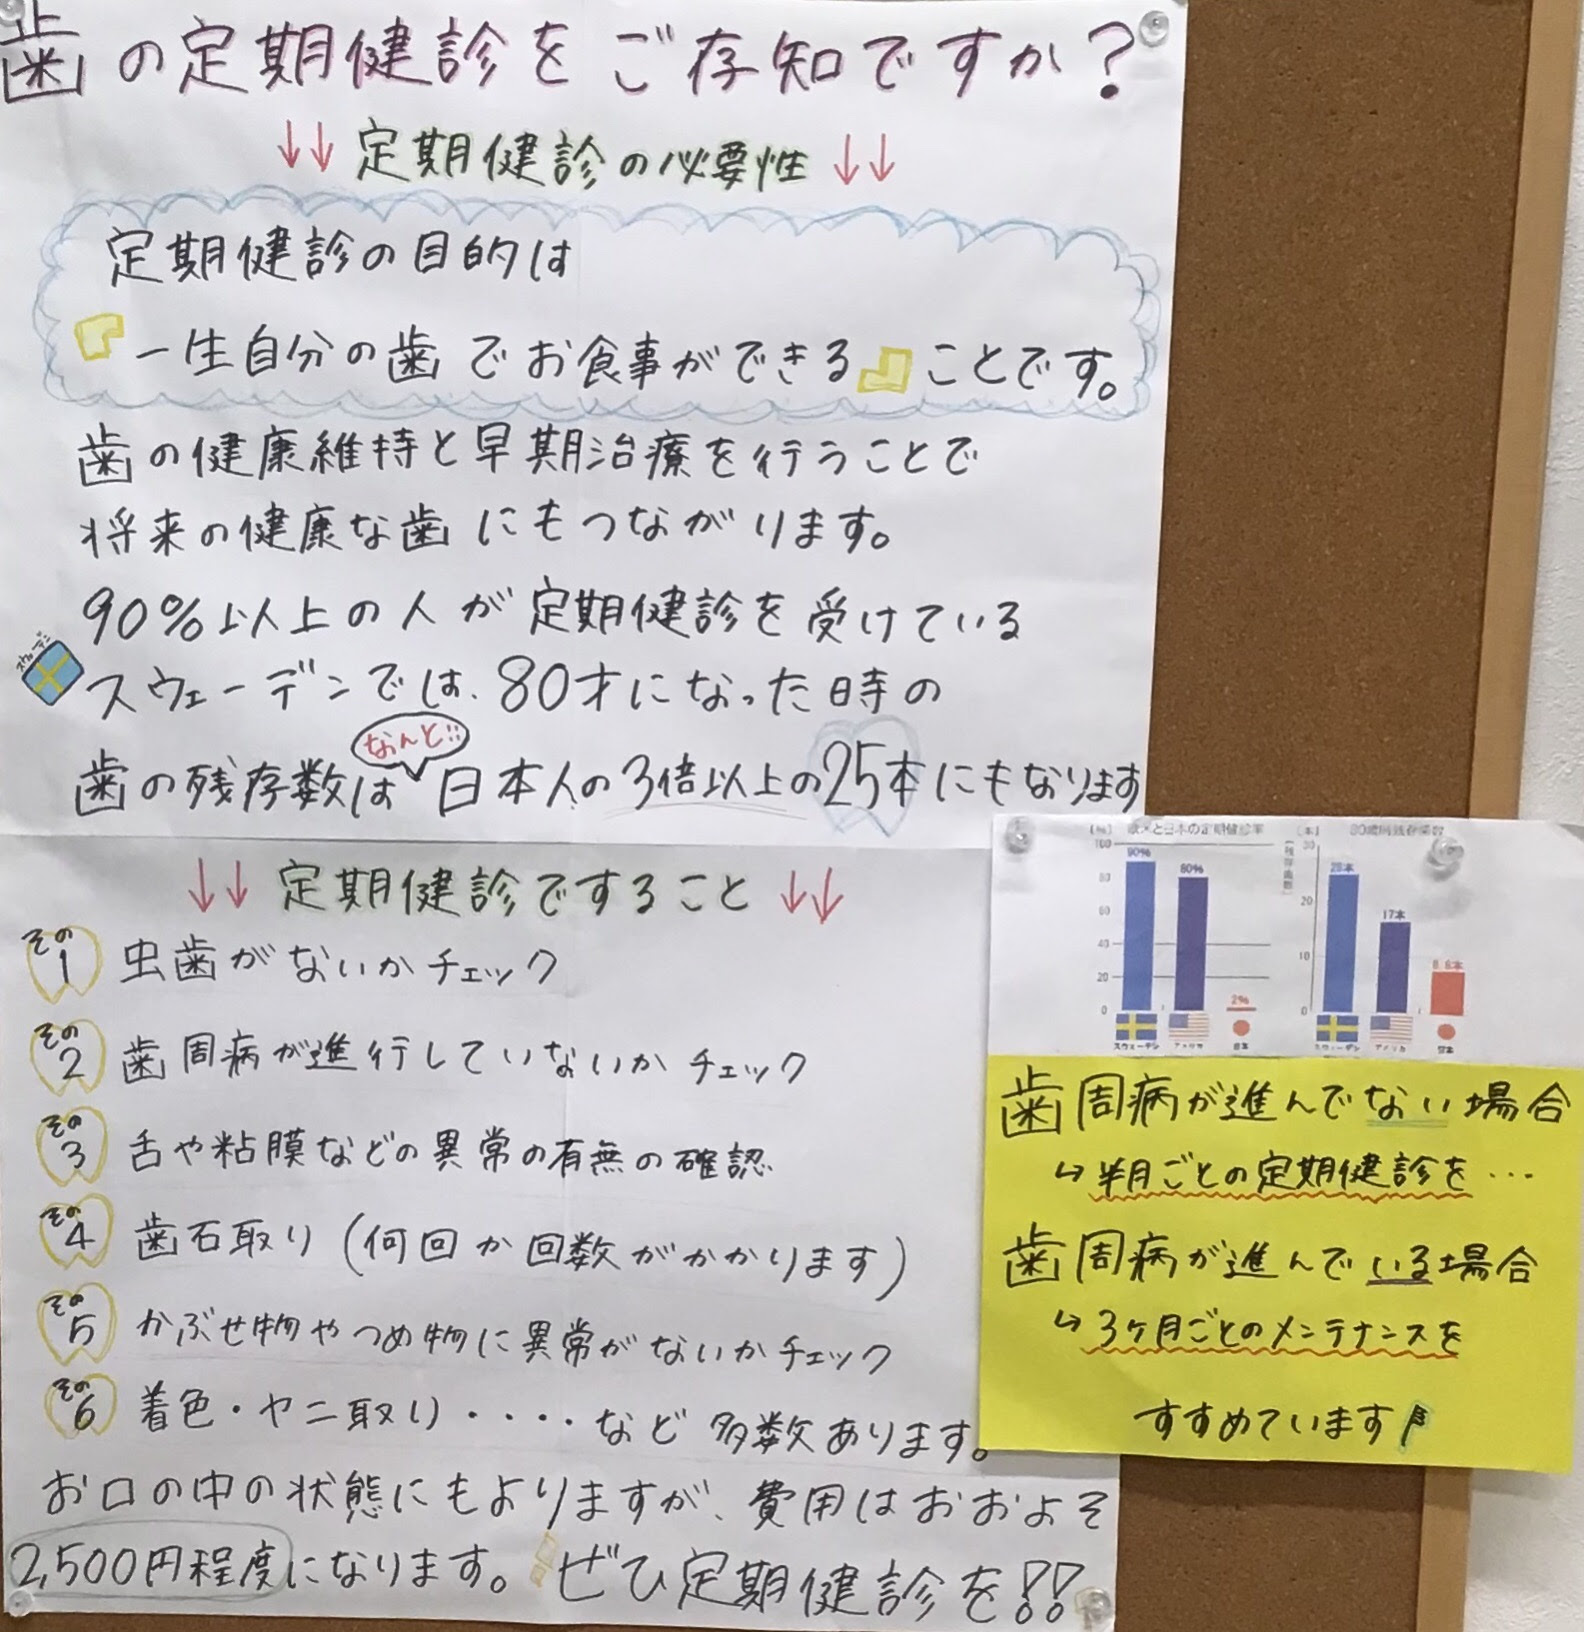 歯の定期健診をご存知ですか?
↓↓ 定期健診の必要性 ↓↓
定期健診の目的は
『一生自分の歯でお食事ができる』ことです。
歯の健康維持と早期治療を行うことで
将来の健康な歯にもつながります。
90%以上の人が定期健診を受けている
スウェーデン
スウェーデンでは、80才になった時の
なんと!!
歯の残存数は日本人の3倍以上の25本にもなります
↓↓ 定期健診ですること ↓↓
その1 虫歯がないかチェック
その2 歯周病が進行していないかチェック
その3 舌や粘膜などの異常の有無の確認
その4 歯石取り(何回か回数がかかります)
その5 かぶせ物やつめ物に異常がないかチェック
その6 着色・ヤニ取り・・・・など多数あります。
お口の中の状態にもよりますが、費用はおおよそ
2,500円程度になります。ぜひ定期健診を!!
[%] 欧米と日本の定期健診率
100
80
60
40
20
0
90%
80%
2%
スウェーデン アメリカ 日本
[本] 80歳時残存歯数
[残存歯数]
30
20
10
0
25本
17本
8.8本
スウェーデン アメリカ 日本
歯周病が進んでない場合
↳半月ごとの定期健診を…
歯周病が進んでいる場合
↳3ヶ月ごとのメンテナンスを
すすめています!